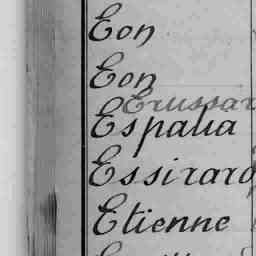 Eon
Eon
Erussar
Espalia
Essirard
Etienne